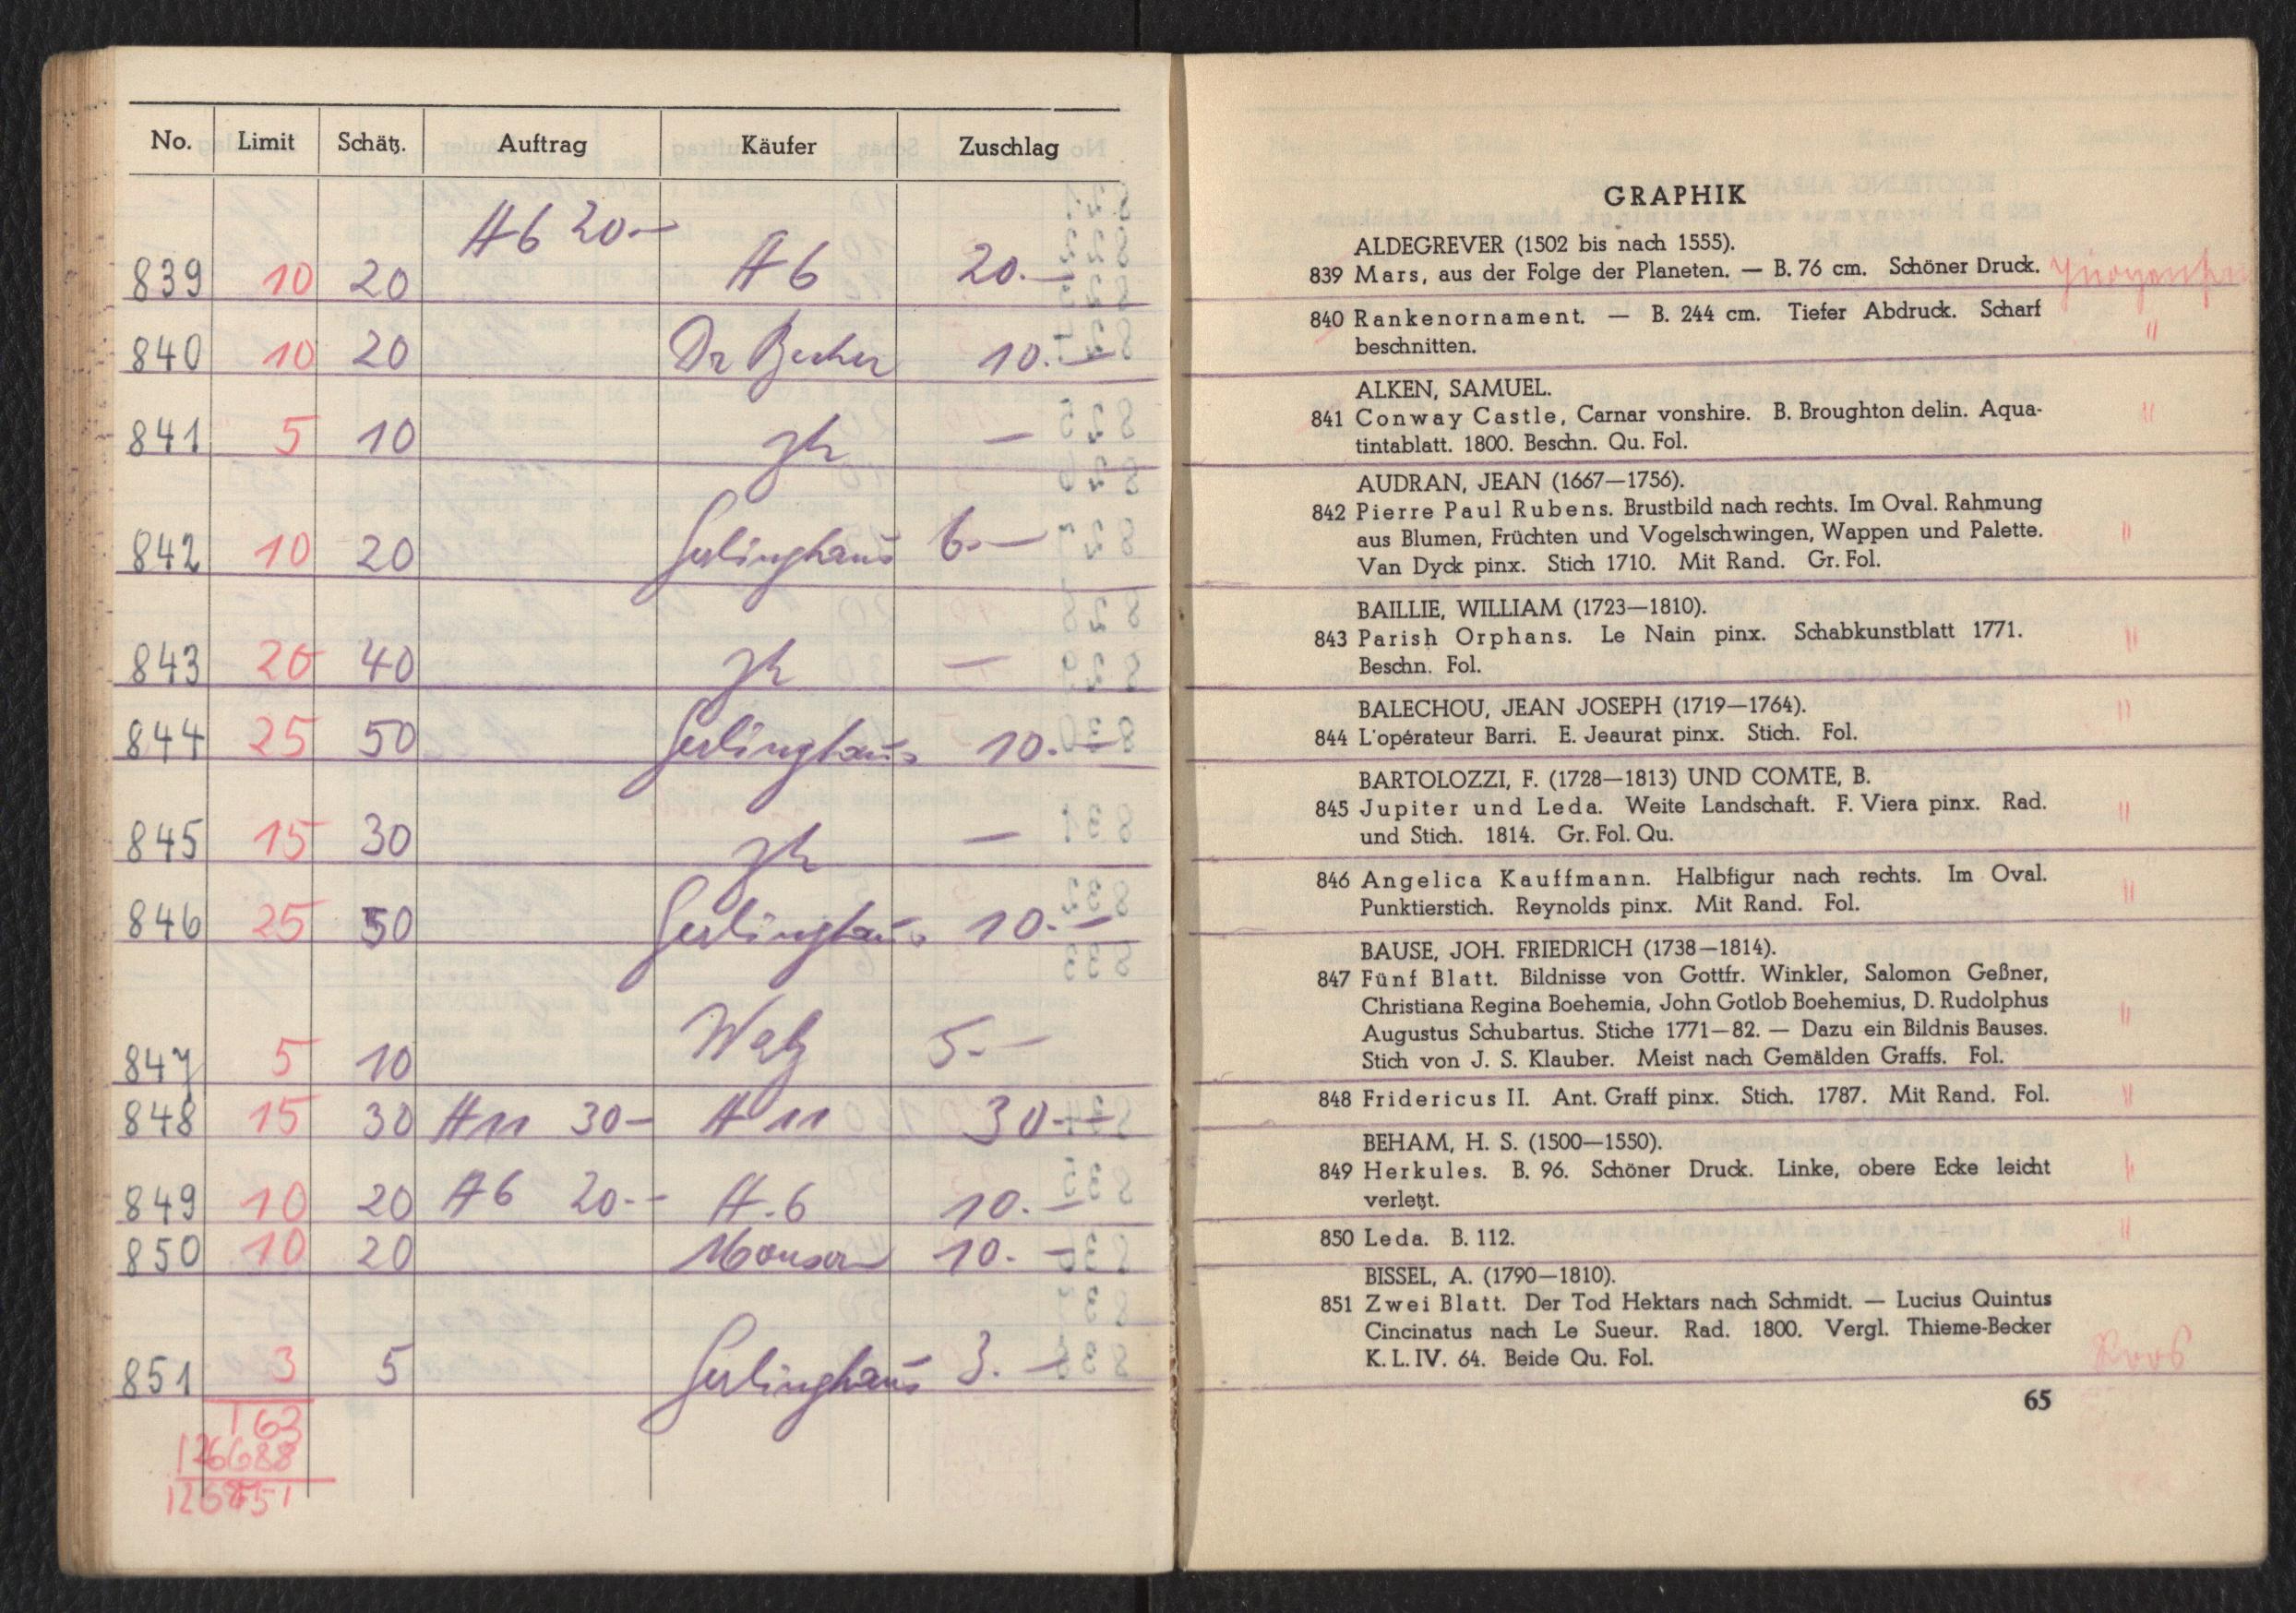 No. Limit Schätz. Auftrag Käufer Zuschlag
839 10 20 A6 20.- A6 20.-
840 10 20 Dr Becker 10.-
841 5 10 zh —
842 10 20 Gerlinghaus 6.-
843 20 40 zh —
844 25 50 Gerlinghaus 10.-
845 15 30 zh —
846 25 50 Gerlinghaus 10.-
847 5 10 Walz 5.-
848 15 30 A11 30- A11 30.-
849 10 20 A6 20.- A.6 10.-
850 10 20 10.-
851 3 5 Gerlinghaus 3.-
163
126688
126851
GRAPHIK
ALDEGREVER (1502 bis nach 1555).
839 Mars, aus der Folge der Planeten. — B. 76 cm. Schöner Druck.
840 Rankenornament. — B. 244 cm. Tiefer Abdruck. Scharf "
beschnitten.
ALKEN, SAMUEL.
841 Conway Castle, Carnar vonshire. B. Broughton delin. Aqua- "
tintablatt. 1800. Beschn. Qu. Fol.
AUDRAN, JEAN (1667—1756).
842 Pierre Paul Rubens. Brustbild nach rechts. Im Oval. Rahmung
aus Blumen, Früchten und Vogelschwingen, Wappen und Palette. "
Van Dyck pinx. Stich 1710. Mit Rand. Gr. Fol.
BAILLIE, WILLIAM (1723—1810).
843 Parish Orphans. Le Nain pinx. Schabkunstblatt 1771. "
Beschn. Fol.
BALECHOU, JEAN JOSEPH (1719—1764). "
844 L'opérateur Barri. E. Jeaurat pinx. Stich. Fol.
BARTOLOZZI, F. (1728—1813) UND COMTE, B.
845 Jupiter und Leda. Weite Landschaft. F. Viera pinx. Rad. "
und Stich. 1814. Gr. Fol. Qu.
846 Angelica Kauffmann. Halbfigur nach rechts. Im Oval. "
Punktierstich. Reynolds pinx. Mit Rand. Fol.
BAUSE, JOH. FRIEDRICH (1738—1814).
847 Fünf Blatt. Bildnisse von Gottfr. Winkler, Salomon Geßner,
Christiana Regina Boehemia, John Gotlob Boehemius, D. Rudolphus "
Augustus Schubartus. Stiche 1771—82. — Dazu ein Bildnis Bauses.
Stich von J. S. Klauber. Meist nach Gemälden Graffs. Fol.
848 Fridericus II. Ant. Graff pinx. Stich. 1787. Mit Rand. Fol. "
BEHAM, H. S. (1500—1550).
849 Herkules. B. 96. Schöner Druck. Linke, obere Ecke leicht "
verletzt.
850 Leda. B. 112. "
BISSEL, A. (1790—1810).
851 Zwei Blatt. Der Tod Hektars nach Schmidt. — Lucius Quintus
Cincinatus nach Le Sueur. Rad. 1800. Vergl. Thieme-Becker
K. L. IV. 64. Beide Qu. Fol. Roos
65